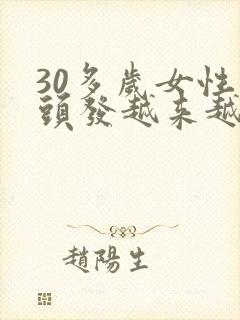 30多歲女性
頭發越来越
趙陽生